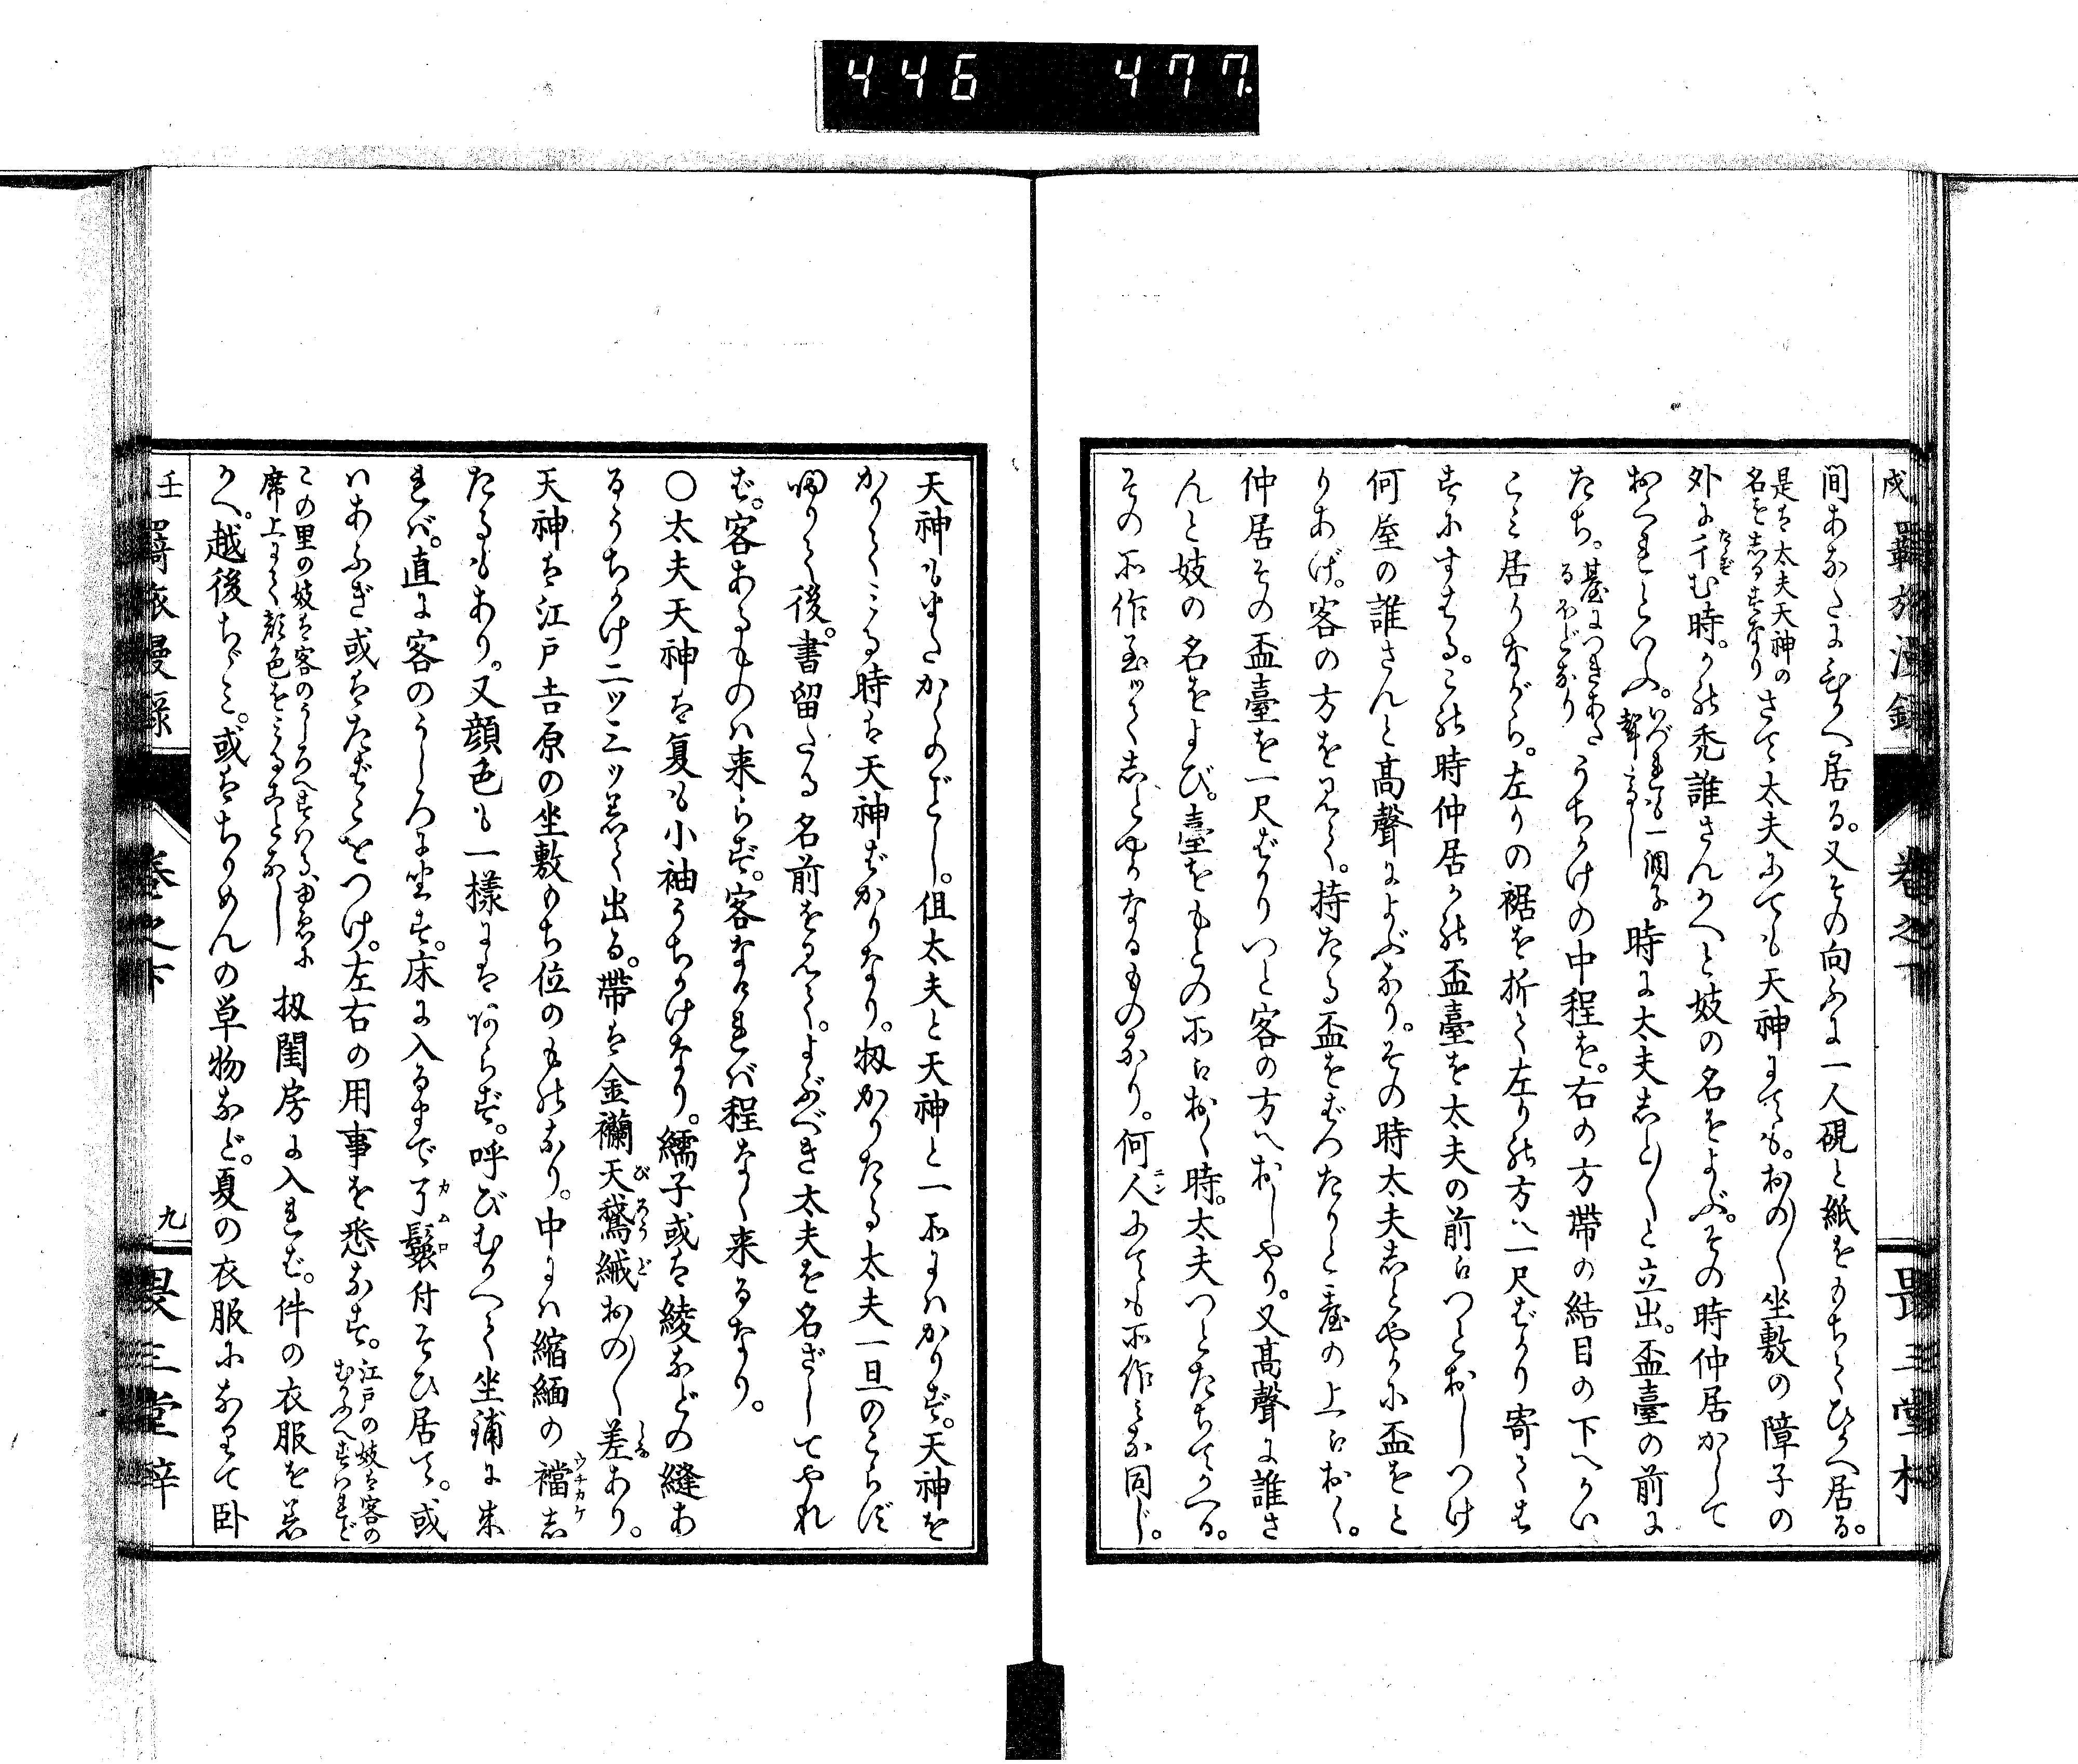 446 477.
羇旅漫録 巻之下 畏三堂梓
間あなたにひかへ居る。又その向ふに一人硯と紙をもちてひかへ居る。
是は太夫天神の名をしるすなり さて太夫にても天神にても。おの〱坐敷の障子の
外に彳む時。かの禿誰さんかへと妓の名をよぶ。その時仲居かして
おくれといふ。いづれも一調子聲高し 時に太夫しと〱と立出。盃臺の前に
たち。臺につきあたるほどなり うちかけの中程を。右の方帯の結目の下へかい
こみ居りながら。左りの裾を折て左りの方へ一尺ばかり寄ても
すにすわる。この時仲居かの盃臺を太夫の前につとおしつけ
何屋の誰さんと高聲によぶなり。その時太夫しとやかに盃をと
りあげ。客の方を見て。持たる盃をばつたりと臺の上におく。
仲居その盃臺を一尺ばかりつと客の方へおしやり。又高聲に誰さ
んと妓の名をよび。臺をもとの所におく時。太夫つとたちてかへる。
その所作至ツてしとやかなるものなり。何人にても所作みな同じ。
天神もまたかくのごとし。但太夫と天神と一所にはかりず。天神を
かりてみる時は天神ばかりなり。扨かりたる太夫一旦のこらず
帰りて後。書留たる名前を見て。よぶべき太夫を名ざしてやれ
ば。客あるものは来らず。客なければ程なく来るなり。
〇太夫天神は夏も小袖うちかけなり。繻子或は綾などの縫あ
るうちかけ二ッ三ッ着て出る。帯は金襴天鵞絨おの〱差あり。
天神は江戸吉原の坐敷もち位のものなり。中には縮緬の襠し
たるもあり。又顔色も一様にはあらず。呼びむかへて坐鋪に来
れば。直に客のうしろに坐す。床に入るまで了鬟付そひ居て。或
はあふぎ或はたばこをつけ。左右の用事を悉なす。江戸の妓は客のむかふへすはれど
この里の妓は客のうしろへすはる、ゆゑに席上にて顔色をみることなし 扨閨房に入れば。件の衣服を着
かへ。越後ちゞみ。或はちりめんの単物など。夏の衣服になりて臥
壬 羇旅漫録 巻之下 九 畏三堂梓